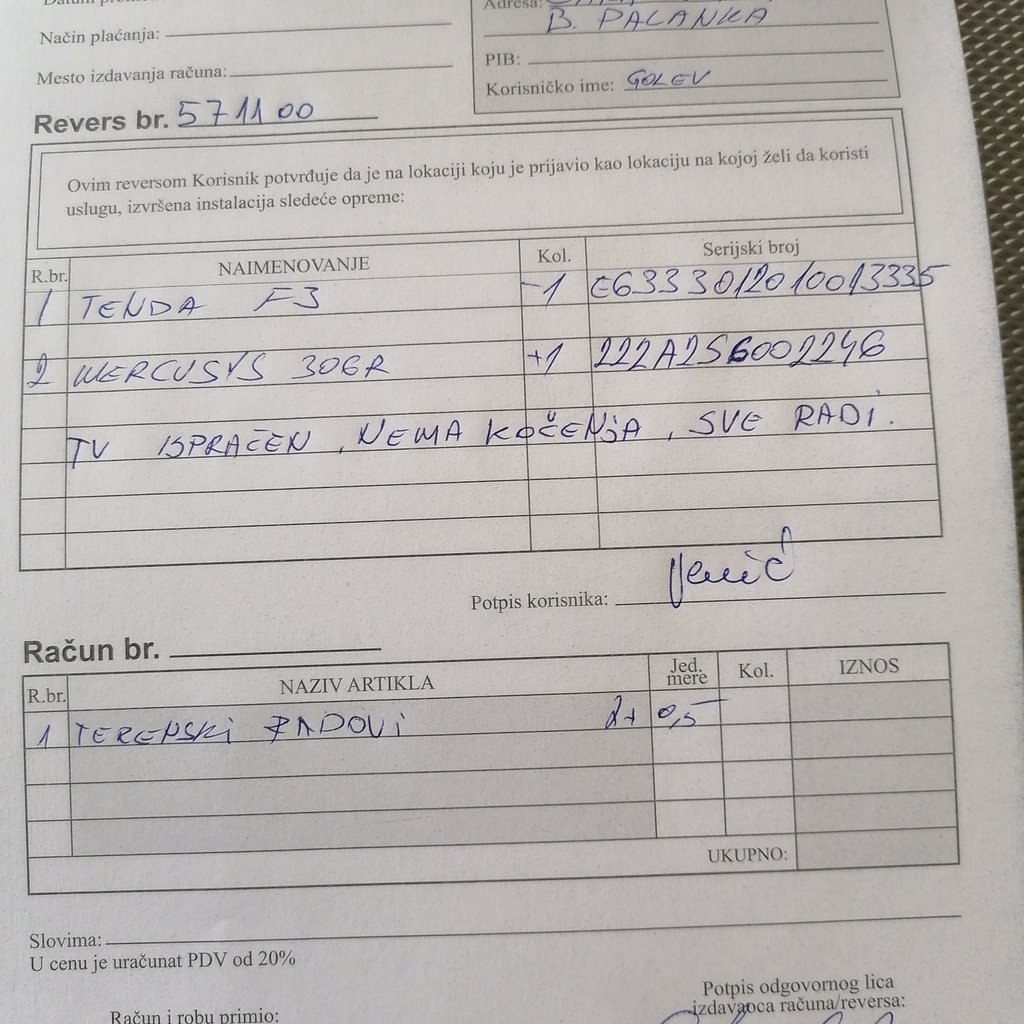 Adresa:
B. PALANKA
Način plaćanja:
PIB:
Mesto izdavanja računa:
Korisničko ime: GOLEV
Revers br. 571100
Ovim reversom Korisnik potvrđuje da je na lokaciji koju je prijavio kao lokaciju na kojoj želi da koristi
uslugu, izvršena instalacija sledeće opreme:
R.br. NAIMENOVANJE Kol. Serijski broj
1 TENDA F3 -1 E6333012010013335
2 MERCUSYS 306R +1 222A2S6002246
TV ISPRAĆEN, NEMA KOČENJA, SVE RADI.
Potpis korisnika:
Račun br.
R.br. NAZIV ARTIKLA Jed. mere Kol. IZNOS
1 TERENSKI RADOVI 2+ 0,5
UKUPNO:
Slovima:
U cenu je uračunat PDV od 20%
Potpis odgovornog lica
izdavaoca računa/reversa:
Račun i robu primio: